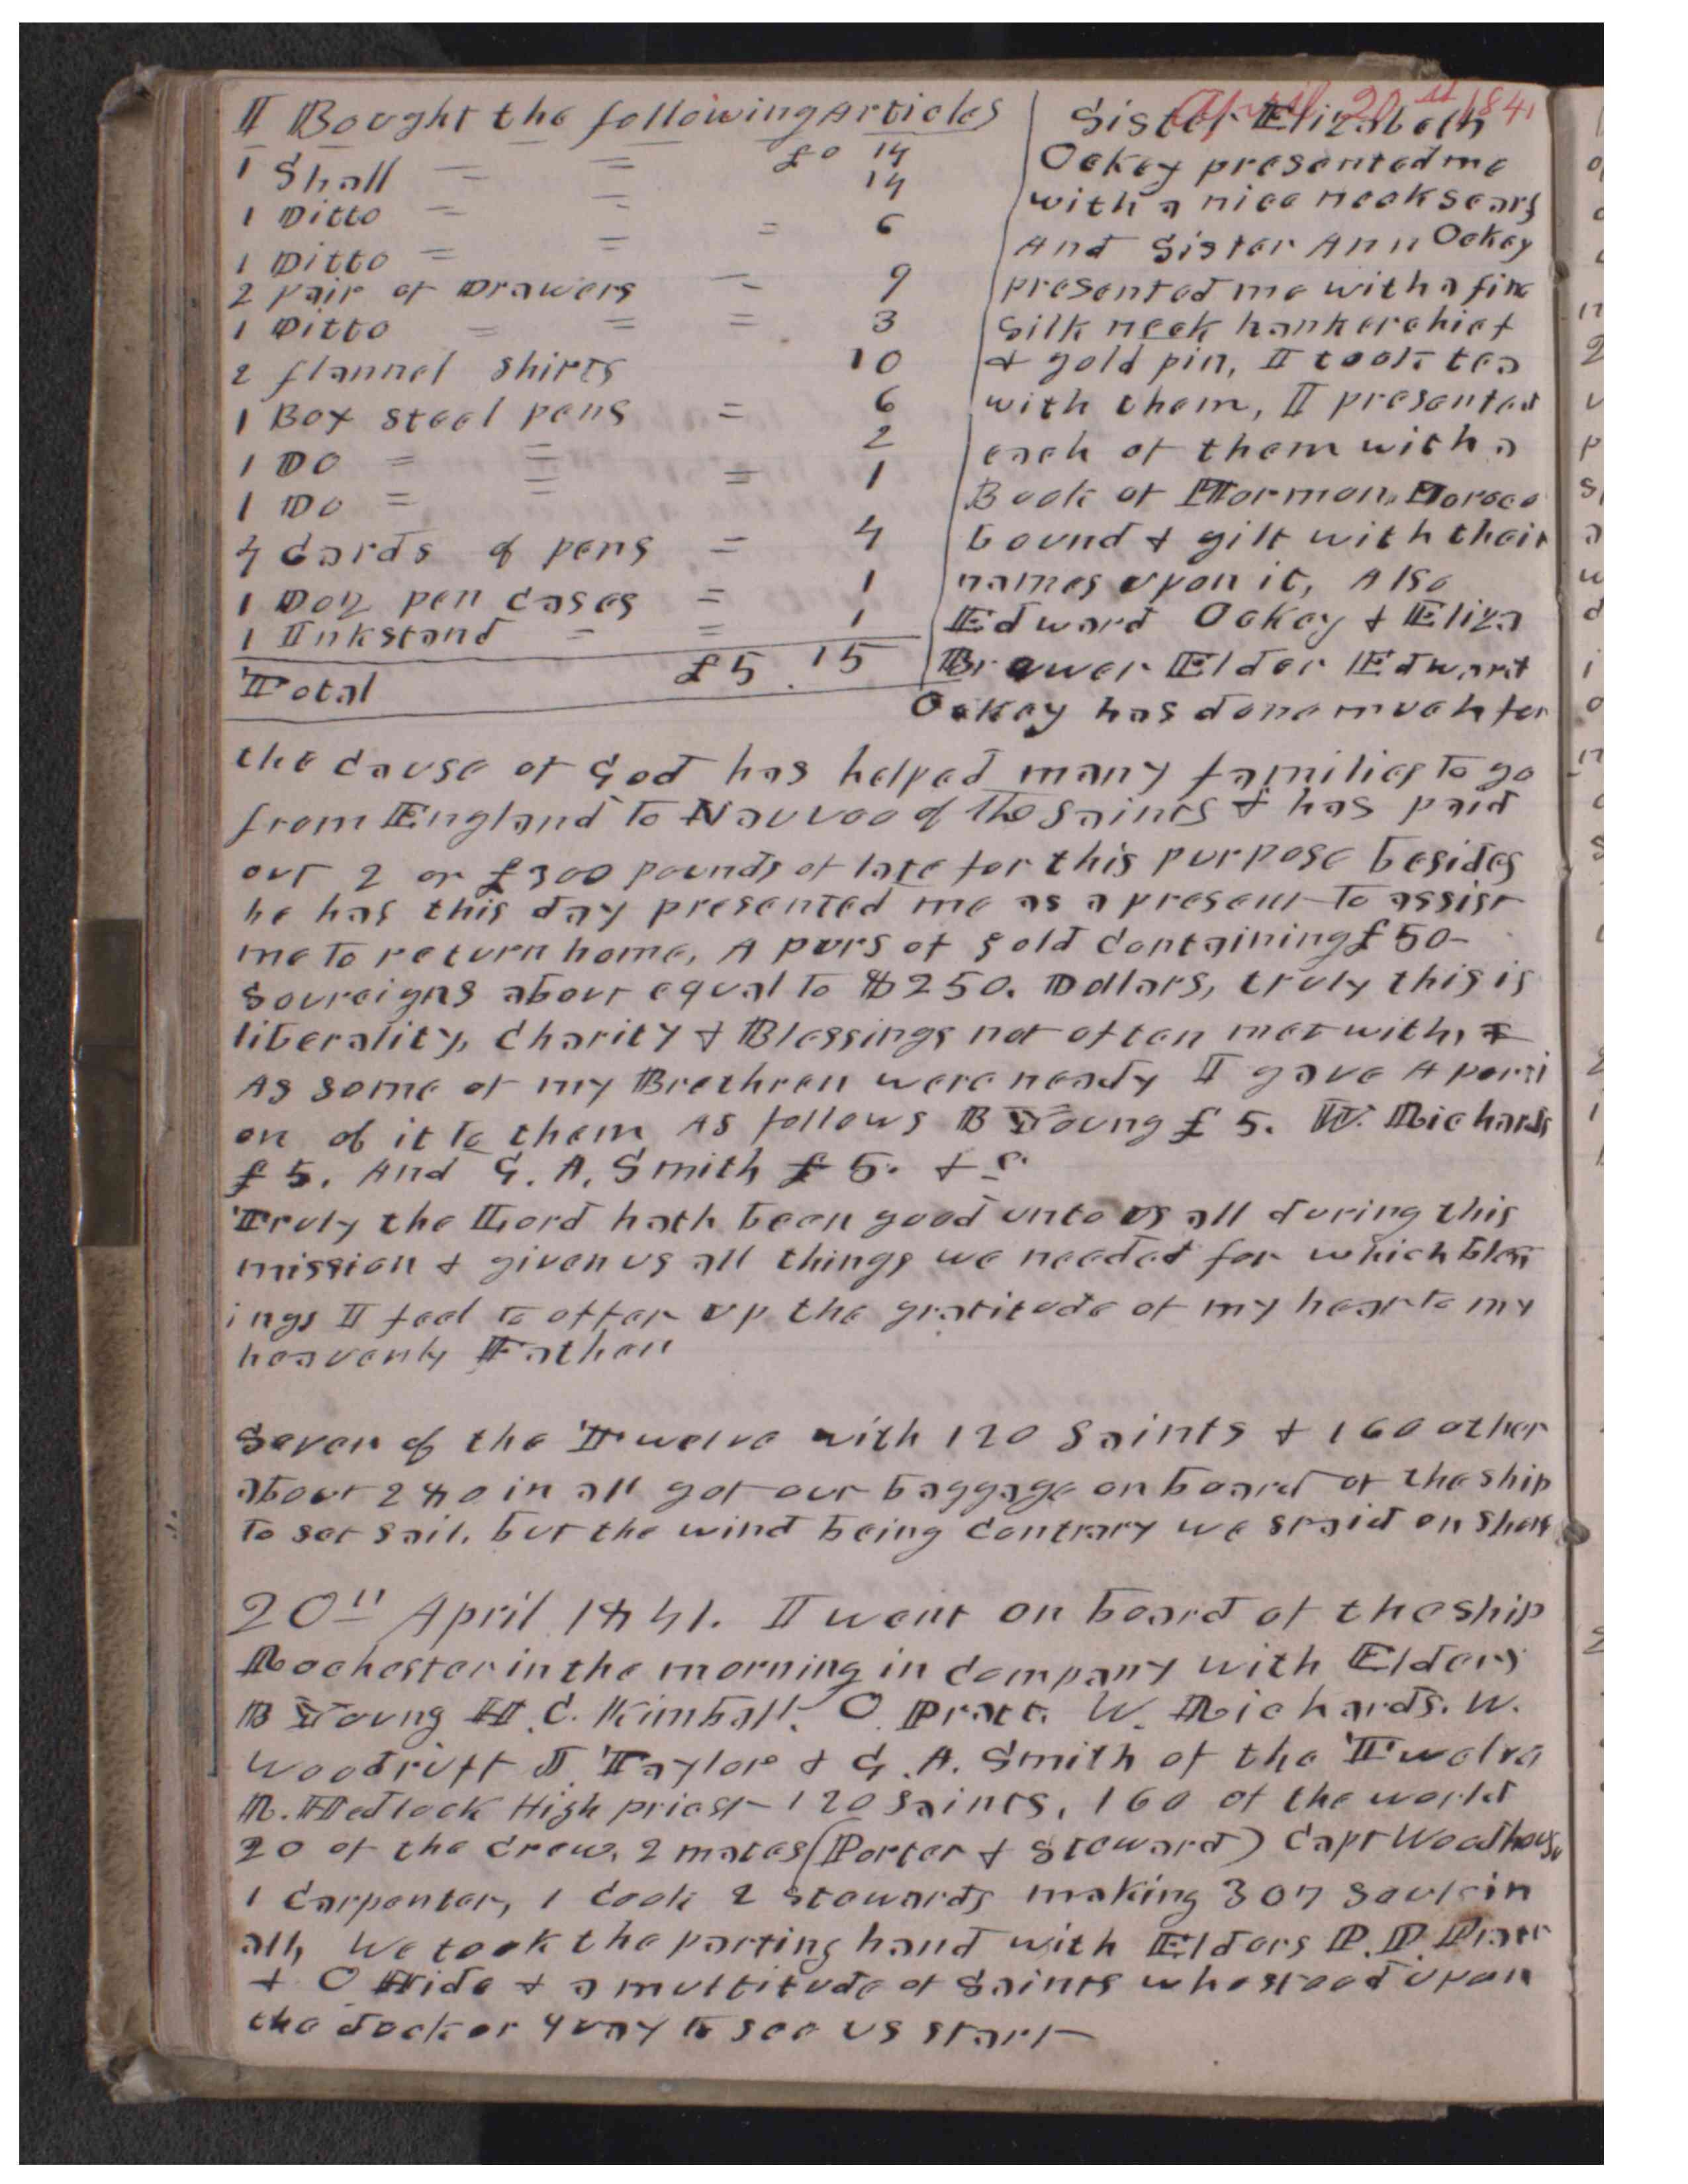 April 20th 1841
I Bought the following Articles
1 Shall = = £0 14
1 Ditto = = 14
1 Ditto = = = 6
2 pair of Drawers = 9
1 Ditto = = = 3
2 flannel shirts 10
1 Box steel pens = 6
1 DO = = 2
1 DO = = = 1
4 Cards of pens = 4
1 Doz pen cases = 1
1 Inkstand = = 1
Total £5.15
Sister Elizabeth
Ockey presented me
with a nice neck scarf
And Sister Ann Ockey
presented me with a fine
silk neck hankerchief
& gold pin, I took tea
with them, I presented
each of them with a
Book of Mormon, Moroco
bound & gilt with their
names upon it, Also
Edward Ockey & Eliza
Brewer Elder Edward
Ockey has done much for
the cause of God has helped many families to go
from England to Nauvoo of the Saints & has paid
out 2 or £300 pounds of late for this purpose besides
he has this day presented me as a present to assist
me to return home, A purs of gold containing £50-
Sovreigns about equal to $250. Dollars, truly this is
liberality, Charity & Blessings not often met with, &
As some of my Brethren were needy I gave A porti
on of it to them As follows B Young £5. W. Richards
£5. And G. A. Smith £5. &c
Truly the Lord hath been good unto us all during this
mission & given us all things we needed for which bless
ings I feel to offer up the gratitude of my heart to my
heavenly Father
Seven of the Twelve with 120 Saints & 160 other
about 280 in all got our baggage on board of the ship
to set sail, but the wind being contrary we staid on Shore
20th April 1841. I went on board of the ship
Rochester in the morning in company with Elders
B Young H. C. Kimball, O Pratt. W. Richards. W.
Woodruff J Taylor & G. A. Smith of the Twelve
R. Hedlock High priest 120 Saints, 160 of the world
20 of the crew, 2 mates (Porter & Steward) Capt Woodhouse
1 Carpenter, 1 Cook 2 Stewards making 307 Souls in
all, We took the parting hand with Elders P. P. Pratt
& O Hide & a multitude of Saints who stood upon
the dock or quay to see us start